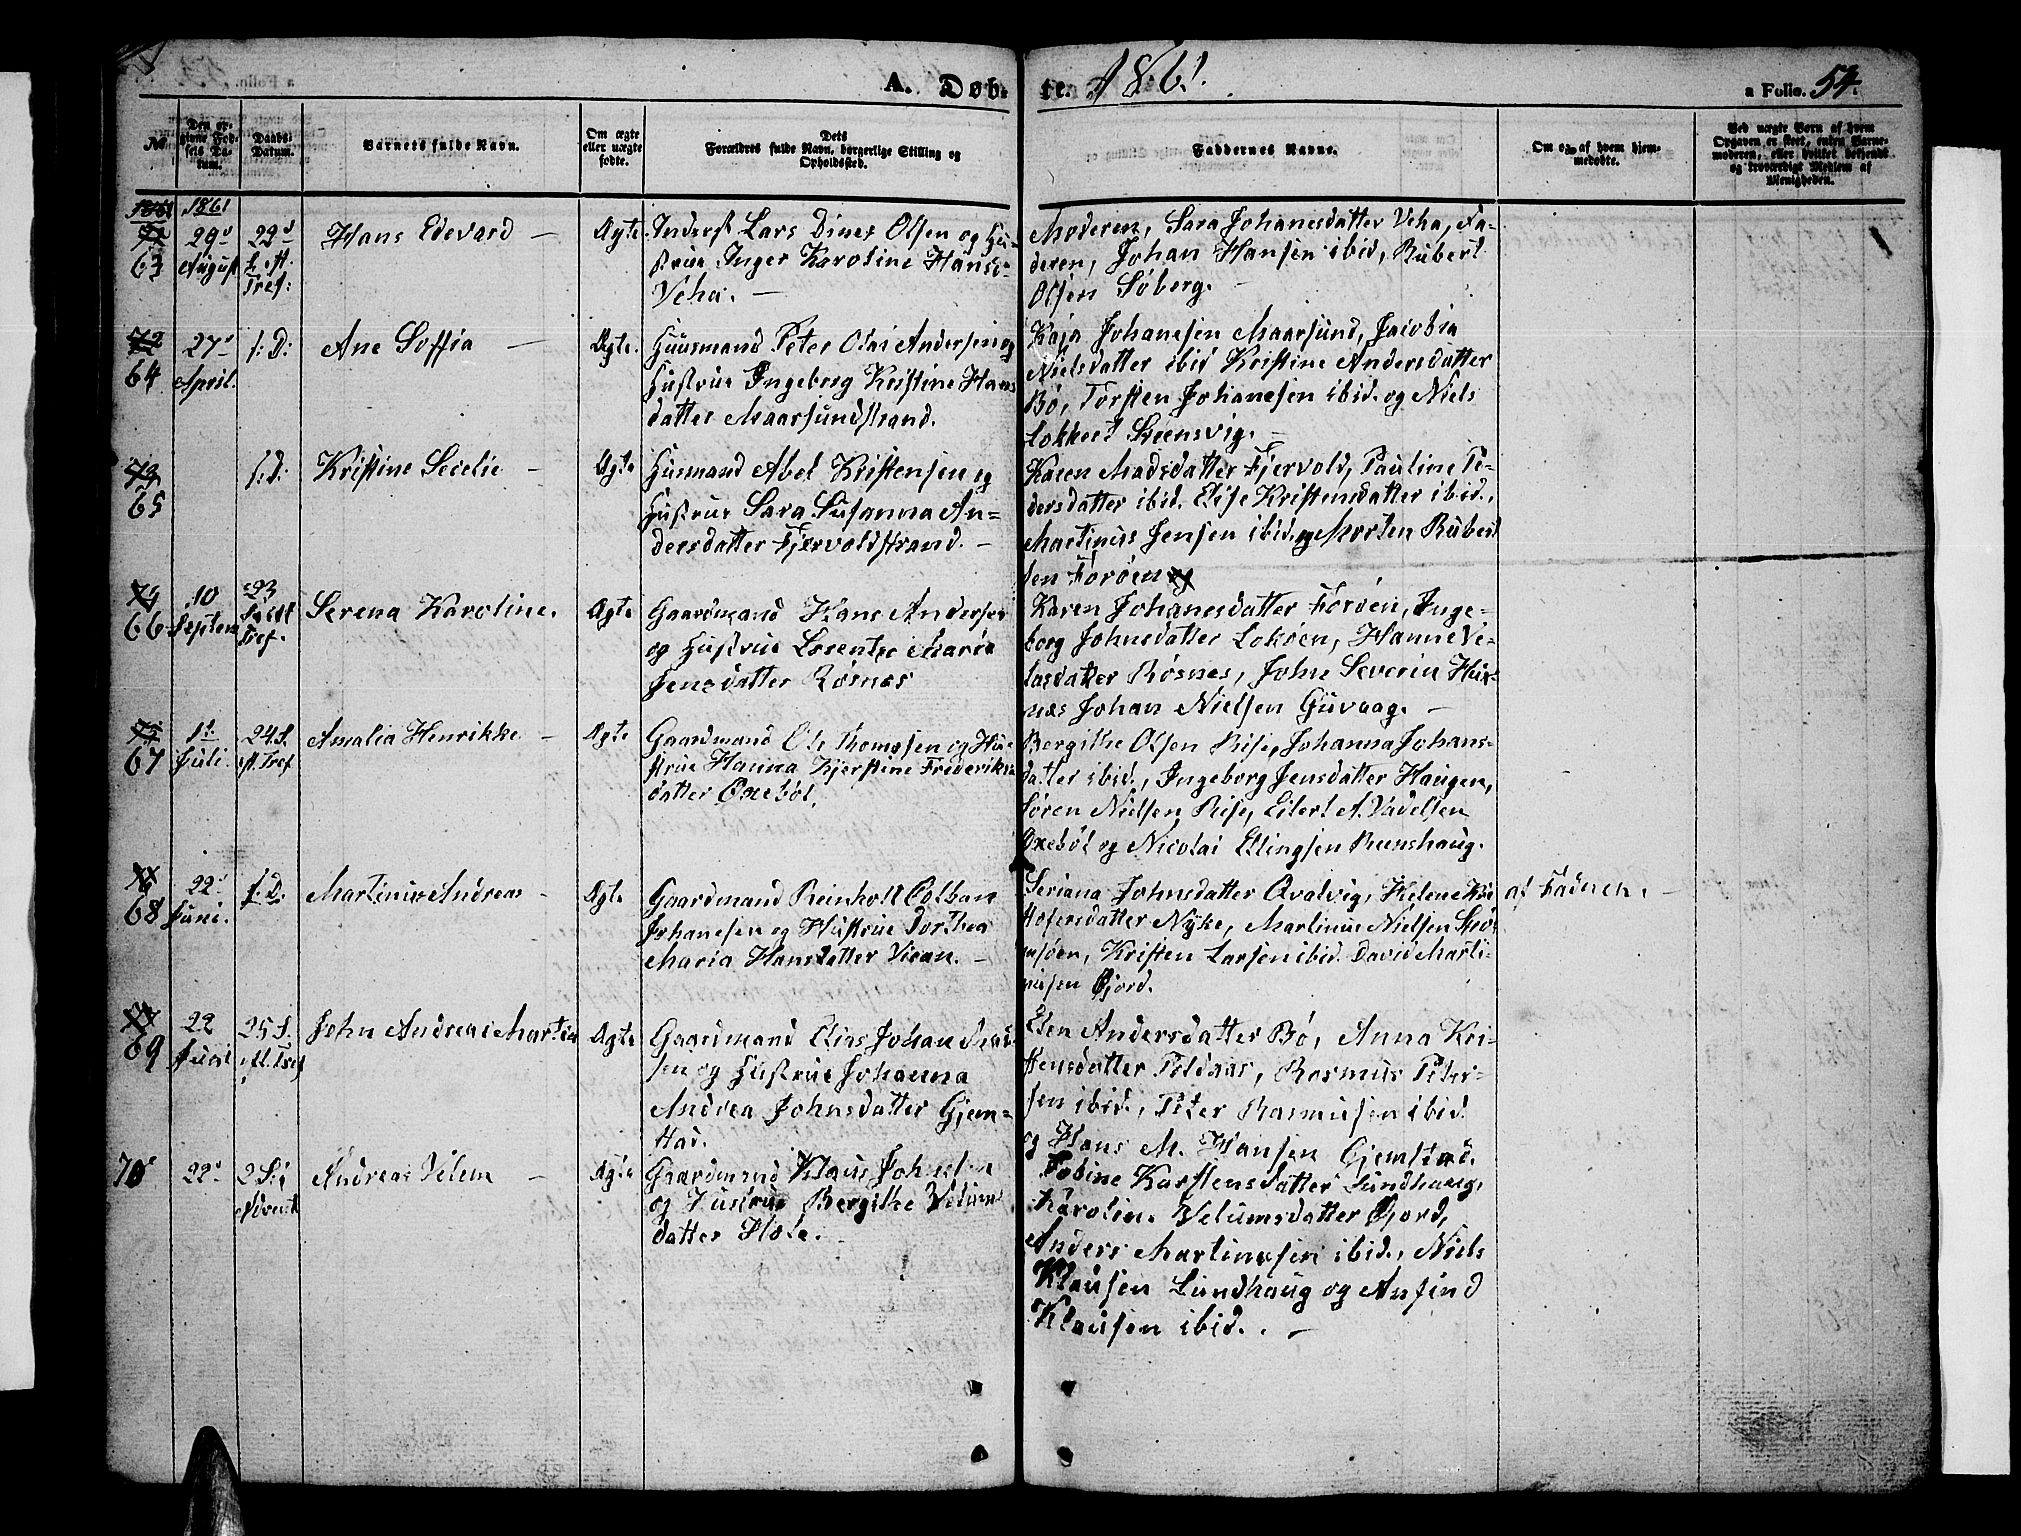 A. Døbte. 1861.
a Folio. 54.
№
Den opgivne Fødsels Datum.
Daabs-Datum.
Barnets fulde Navn.
Om ægte eller uægte fødte.
Dets Forældres fulde Navn, borgerlige Stilling og Opholdssted.
Faddernes Navne.
Om og af hvem hjemmedøbte.
Ved uægte Børn af hvem Opgaven er skeet, enten Barnemoderen, eller hvilket bekjendt og troværdigt Medlem af Menigheden.
1861 1861
63
29d August
22d S. eft. Tref:
Hans Edevard —
Ægte.
Inderst Lars Dines Olsen og Hu-
strue Inger Karoline Hansd:
Veha. —
Moderen, Sara Johanesdatter Veha, Fa-
deren, Johan Hansen ibid, Rubert
Olsen Søberg. —
72
64
27d April.
s: D:
Ane Soffia —
Ægte.
Huusmand Peter Olai Andersen og
Hustrue Ingeborg Kristine Hans
datter Maarsundstrand.
Kaja Johanesen Maarsund, Jacobia
Nielsdatter ibid Kristine Andersdatter
Bø, Torsten Johanesen ibid. og Niels
Lokkert Steensvig. —
73
65
s: D:
Kristine Secelie —
Ægte
Husmand Abel Kristensen og
Hustrue Sara Susanna An-
dersdatter Fjervoldstrand. —
Karen Madsdatter Fjervold, Pauline Pe-
dersdatter ibid. Elise Kristensdatter ibid.,
Martinus Jensen ibid. og Morten Rubert
sen Forøen
74
66
10 Septem
23 Tref.
Serena Karoline.
Ægte
Gaardmand Hans Andersen
og Hustrue Lorentze Maria
Jensdatter Røsnes
Karen Johanesdatter Forøen, Inge-
borg Johnsdatter Lokøen, Hanne
datter Røsnes, John Severin
Johan Nielsen Guvaag. —
75
67
1d Juli.
24. S. eft. Tref
Amalia Henrikke —
Ægte
Gaardmand Ole Thomssen og Hu-
strue Hanna Kjerstine Frideriks-
datter Oxebøl.
Bergithe Olsen Rise, Johanna Johans-
datter ibid., Ingeborg Jensdatter Haugen,
Søren Nielsen Rise, Eilert A. Vadelsen
Oxebøl og Nicolai Ellingsen Reenshaug.
68
22d Juni.
s. D:
Martinus Andreas —
Ægte
Gaardmand Reinholt Colban
Johanesen og Hustrue Dorthea
Maria Hansdatter Vican. —
Seriana Johnsdatter Qvalvig, Helene Kri
stofersdatter Nyke, Martinus Nielsen
Kristen Larsen ibid. David Marti-
nusen Fjord.
af Faderen. —
69
22 Juni
25 S. eft. Tref
John Andreas Martin
Ægte
Gaardmand Elias Johan
sen og Hustrue Johanna
Andrea Johnsdatter Gjem-
stad.
Elen Andersdatter Bø, Anna Kri-
stensdatter Poldaas, Rasmus Peter-
sen ibid., Peter Rasmusen ibid.
og Hans M. Hansen Gjemstad.
70
22d
2 S: i Advent
Andreas Velem —
Ægte
Gaardmand Klaus Johnsen
og Hustrue Bergithe Velum
datter Hole.
Tobine Karstensdatter Lundhaug,
Karolin. Velumsdatter Fjord,
Anders Martinusen ibid., Niels
Klausen Lundhaug og Anfind
Klausen ibid. . —